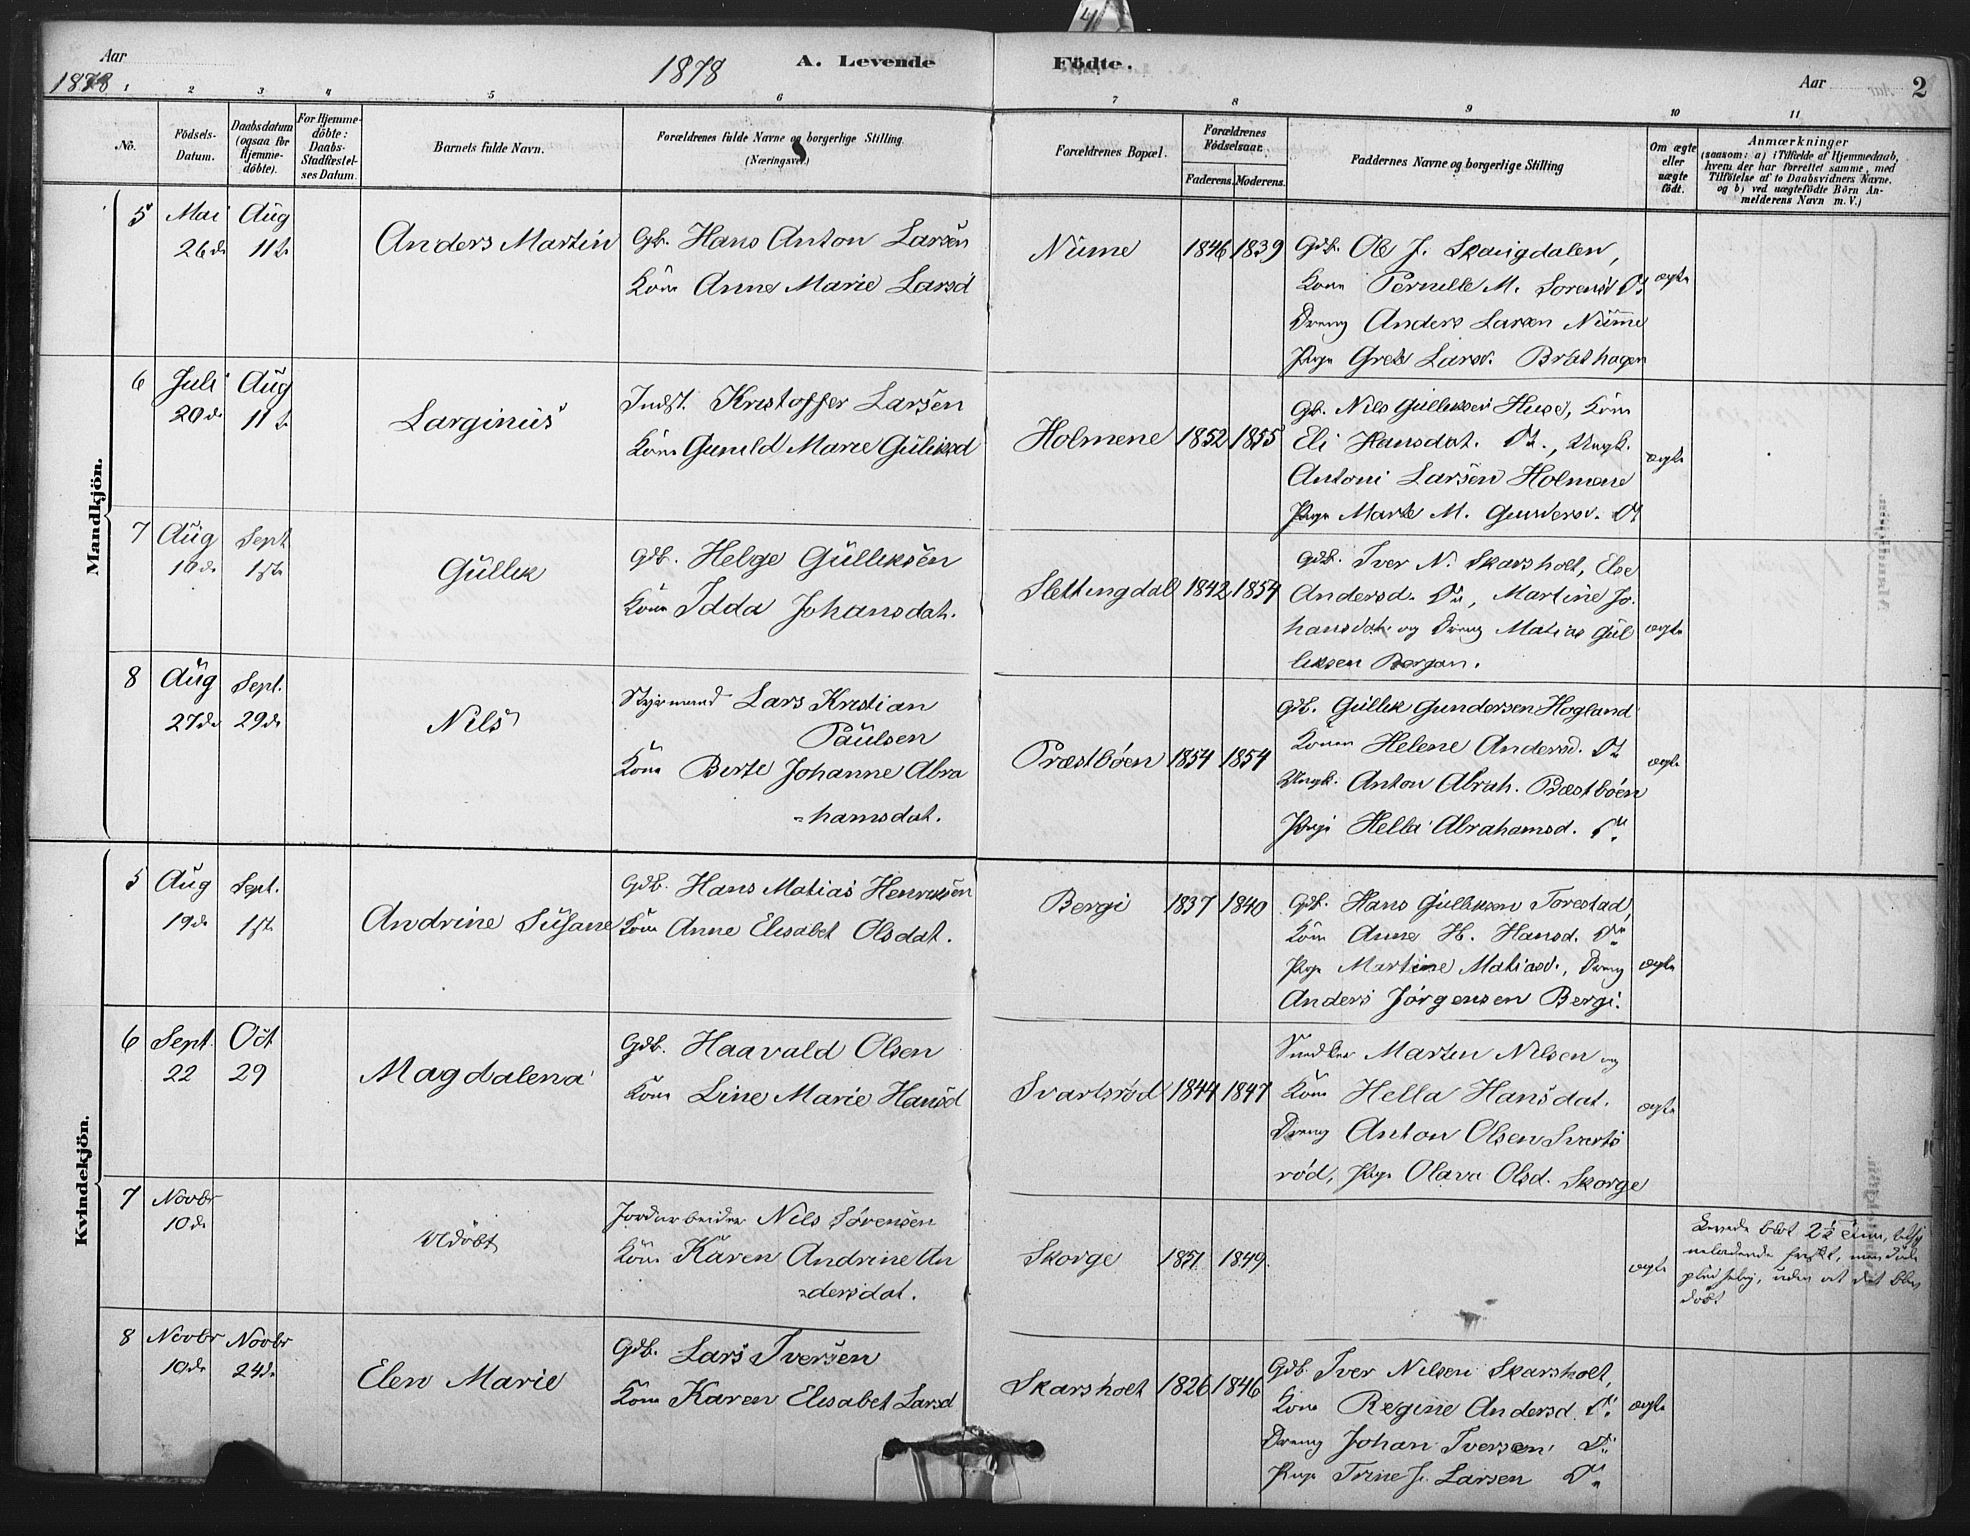 Aar
1878
1878
A. Levende
Födte.
Aar
2
1 2 3 4 5 6 7 8 9 10 11
No.
Födsels-
Datum.
Daabsdatum
(ogsaa for
Hjemme-
döbte).
For Hjemme-
döbte:
Daabs-
Stadfæstel-
ses Datum.
Barnets fulde Navn.
Forældrenes fulde Navne og borgerlige Stilling
(Næringsvei.)
Forældrenes Bopæl.
Forældrenes
Födselsaar.
Faderens. Moderens.
Faddernes Navne og borgerlige Stilling
Om ægte
eller
uægte
födt.
Anmærkninger
(saasom: a) i Tilfælde af Hjemmedaab,
hvem der har forrettet samme, med
Tilföielse af to Daabsvidners Navne.
og b) ved uægtefödte Börn An-
melderens Navn m. V.)
Mandkjön.
5
Mai
26de
Aug
11te
Anders Martin
Gb. Hans Anton Larsen
Kone Anne Marie Larsd
Nüme
1846 1839
Gdb. Ole J. Skougdalen,
Kone Pernille M. Sorensd Do
Dreng Anders Larsen Nüme
Pige Grete Larsd. Bråthagen
ægte
6
Juli
20de
Aug
11te
Larginius
Indst. Kristoffer Larsen
Kone Gunild Marie Güliksd
Holmene
1852 1855
Gb. Nils Gülliksen Huse, Kone
Eli Hansdat. Do., Ungk.
Antoni Larsen Holmene
Pige Marte M. Gundersd. Do
ægte
7
Aug
10de
Sept
1ste
Güllik
Gdb. Helge Gülliksen
Kone Idda Johansdat.
Slettingdal
1842 1854
Gdb. Iver N. Skarsholt, Else
Andersd. Do, Martine Jo-
hansdat. og Dreng Matias Gül
liksen Bergan.
ægte
8
Aug
27de
Sept.
29de
Nils
Styrmand Lars Kristian
Paulsen
Kone Berte Johanne Abra
=hamsdat.
Præstbøen
1854 1854
Gdb. Güllik Gundersen Hogland
Konen Helene Andersd. Do
Ungk. Anton Abrah. Præstbøen
Pige Hella Abrahamsd. Do
ægte
Kvindekjön.
5
Aug
19de
Sept.
1ste
Andrine Süsane
Gdb. Hans Matias Henriksen
Kone Anne Elisabet Olsdat.
Bergi
1837 1840
Gdb. Hans Gülliksen Torestad,
Kone Anne H. Hansd. Do
Pige Martine Matiasd., Dreng
Anders Jørgensen Bergi.
ægte
6
Sept.
22
Oct
29
Magdalena
Gdb. Haavald Olsen
Kone Line Marie Hansd
Svartsrød
1844 1847
Snedker Marten Nilsen og
Kone Hella Hansdat.
Dreng Anton Olsen Svarts
rød, Pige Olava Olsd. Skorge
ægte
7
Novbr
10de
Udöbt
Jordarbeider Nils Sørensen
Kone Karen Andrine An
=dersdat.
Skorge
1851 1849.
ægte
Levede blot 2½ time,
friskt, men døde
uden at det blev
döbt
8
Novbr
10de
Novbr
24de
Elen Marie
Gdb. Lars Iversen
Kone Karen Elisabet Larsd
Skarsholt
1826 1846
Gdb. Iver Nilsen Skarsholt,
Kone Regine Andersd. Do
Dreng Johan Iversen Do
Pige Trine J. Larsen Do
ægte